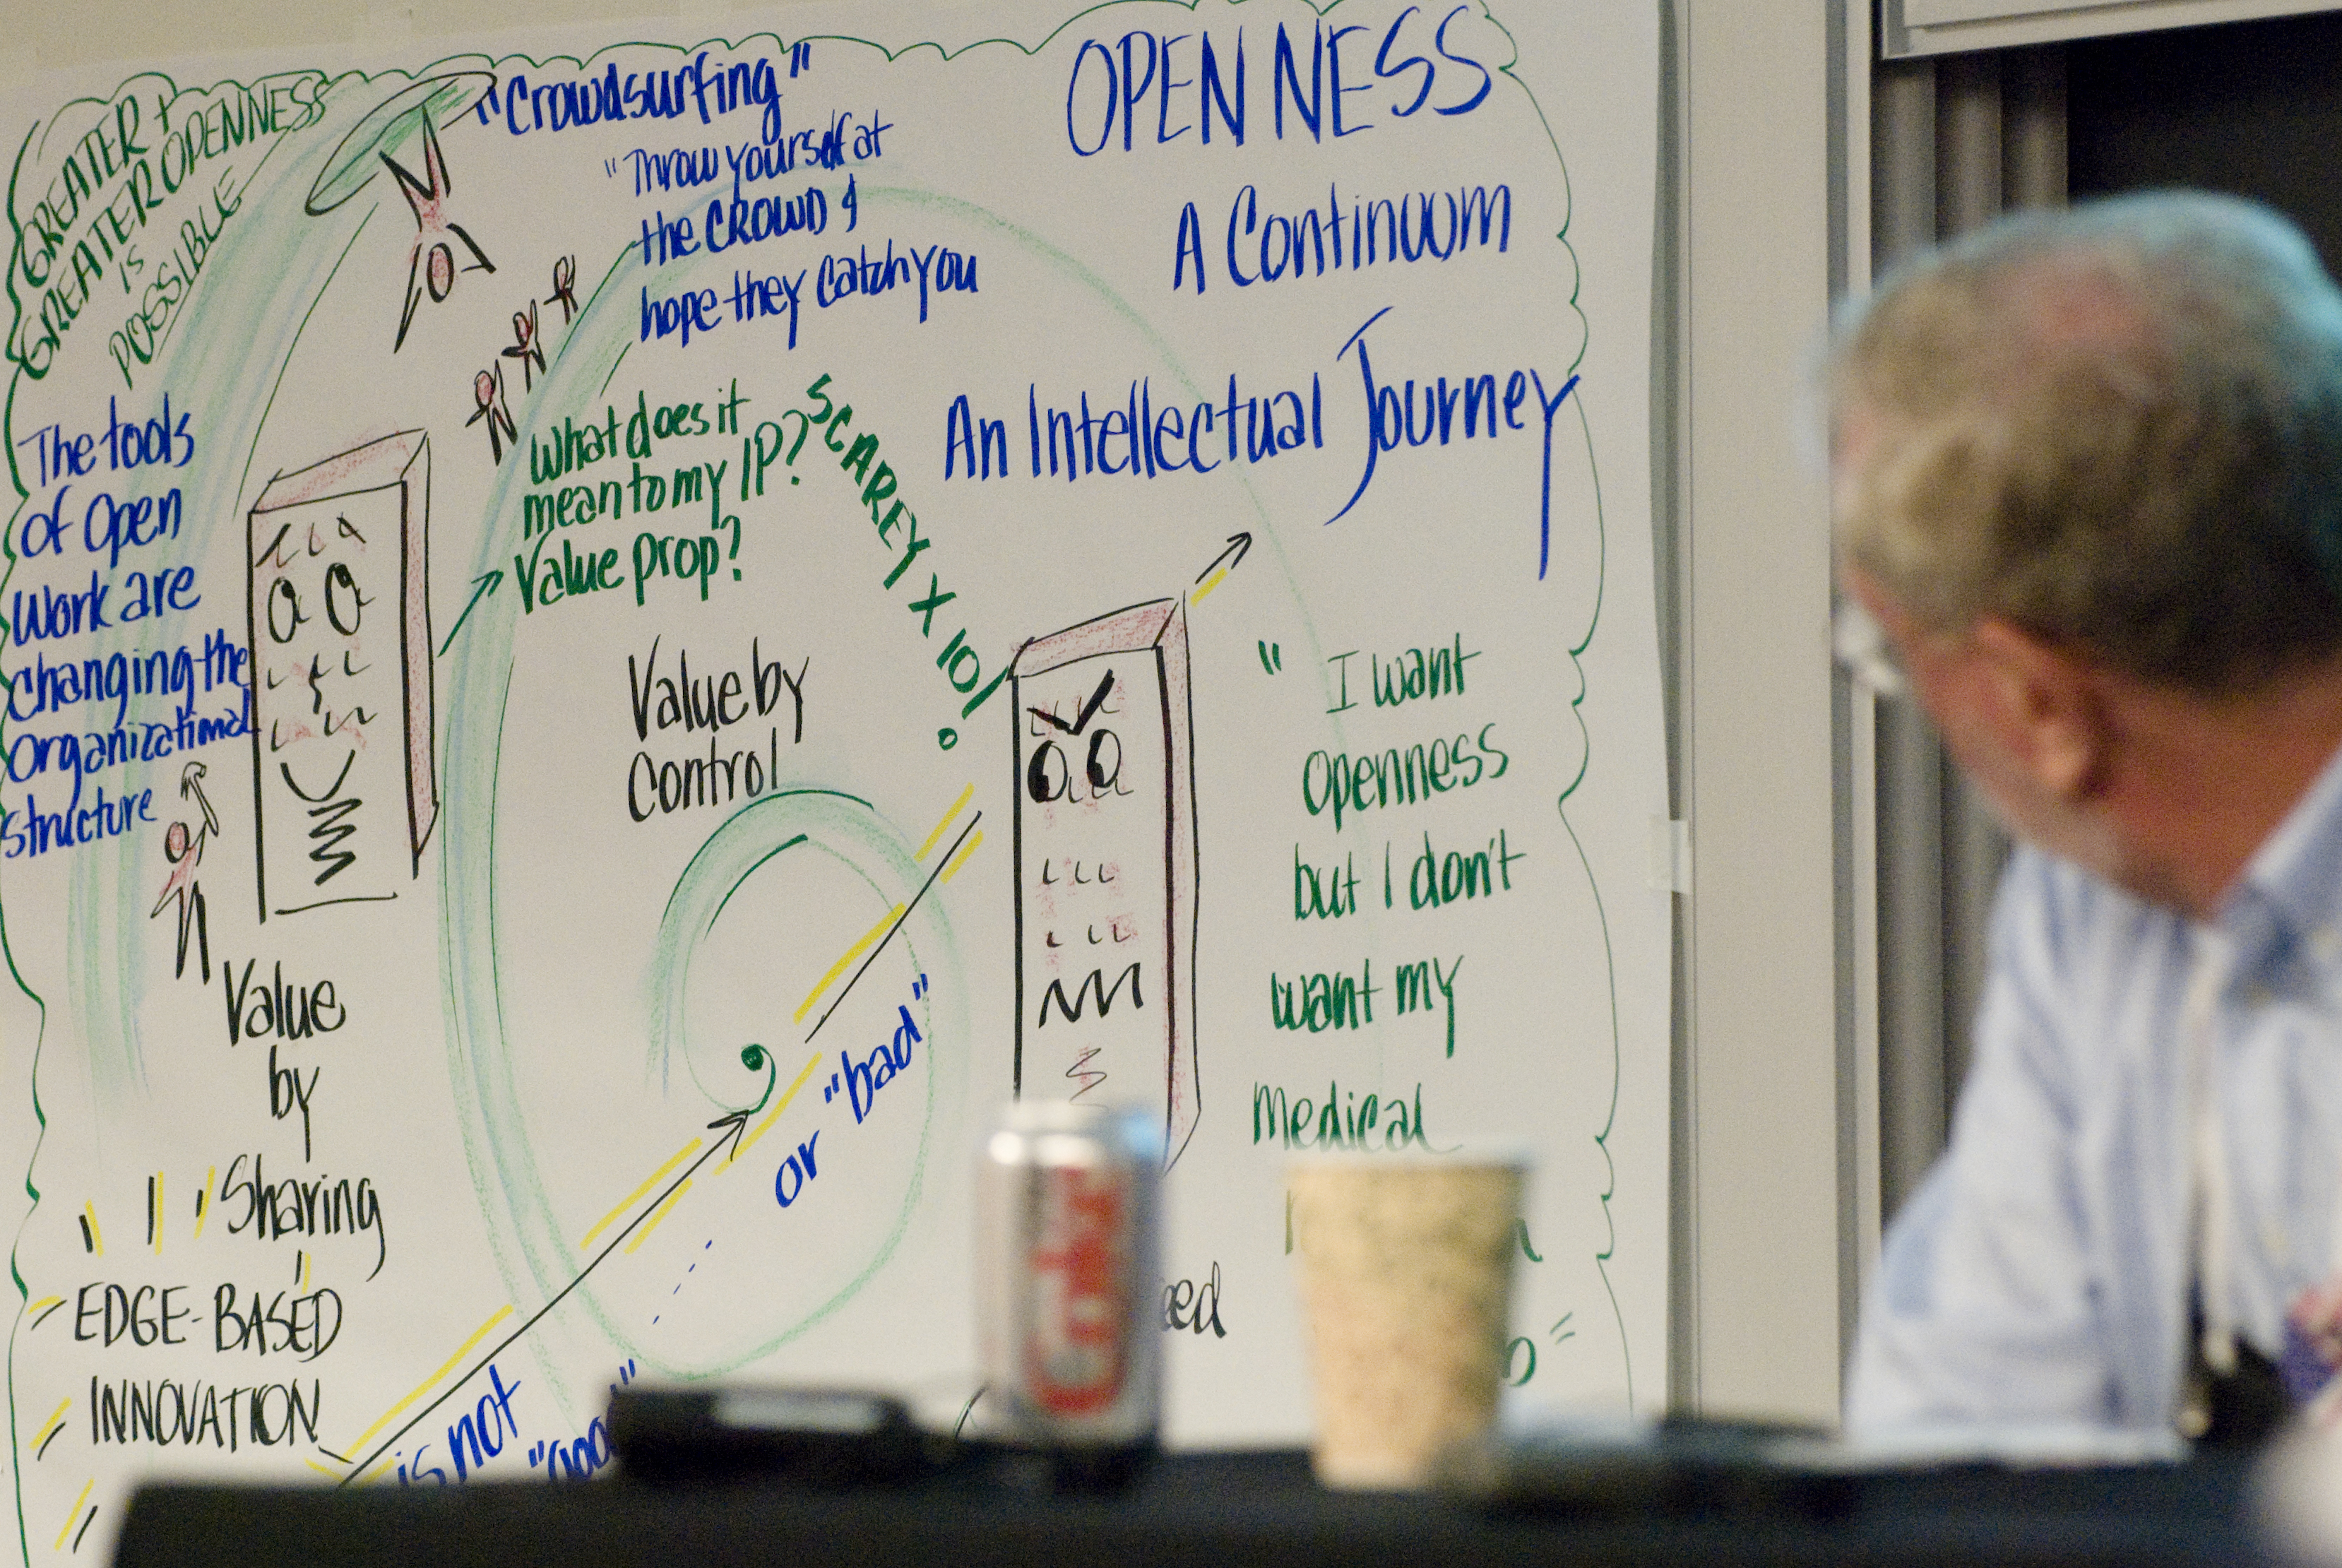 OPENNESS
A Continuum
An Intellectual Journey
GREATER +
GREATER OPENNESS
IS
POSSIBLE
"Crowdsurfing"
"Throw yourself at
the CROWD &
hope they catch you
The tools
of Open
Work are
changing the
Organizational
structure
What does it
mean to my IP?
Value prop?
SCAREY X 10!
Value by
Control
" I want
Openness
but I don't
want my
Medical
Value
by
Sharing
EDGE-BASED
INNOVATION
is not
or "bad"
Coke